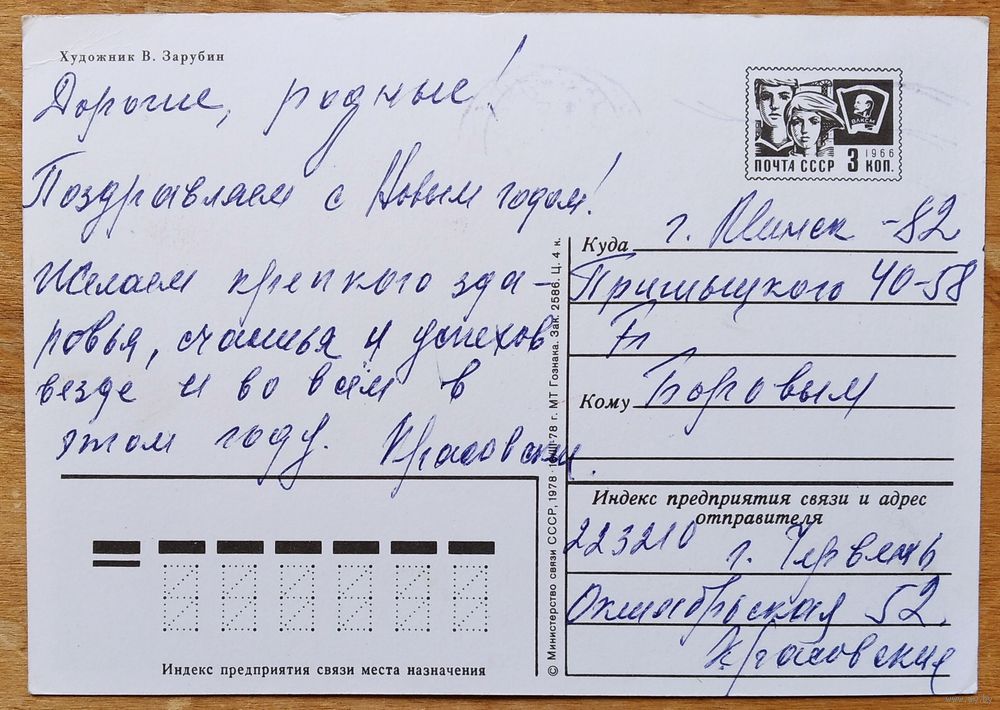 Художник В. Зарубин
Дорогие, родные!
Поздравляем с Новым годом!
Желаем крепкого здо-
ровья, счастья и успехов
везде и во всём в
этом году. Красовские.
ПОЧТА СССР 3 КОП.
1966
ВЛКСМ
Куда г. Минск -82
Притыцкого 40-58
Кому Борговым
Индекс предприятия связи и адрес
отправителя
223210
г. Червень
Октябрьская 52
Красовские
Индекс предприятия связи места назначения
© Министерство связи СССР, 1978 78 г. МТ Гознака. Зак. 2586. Ц. 4 к.